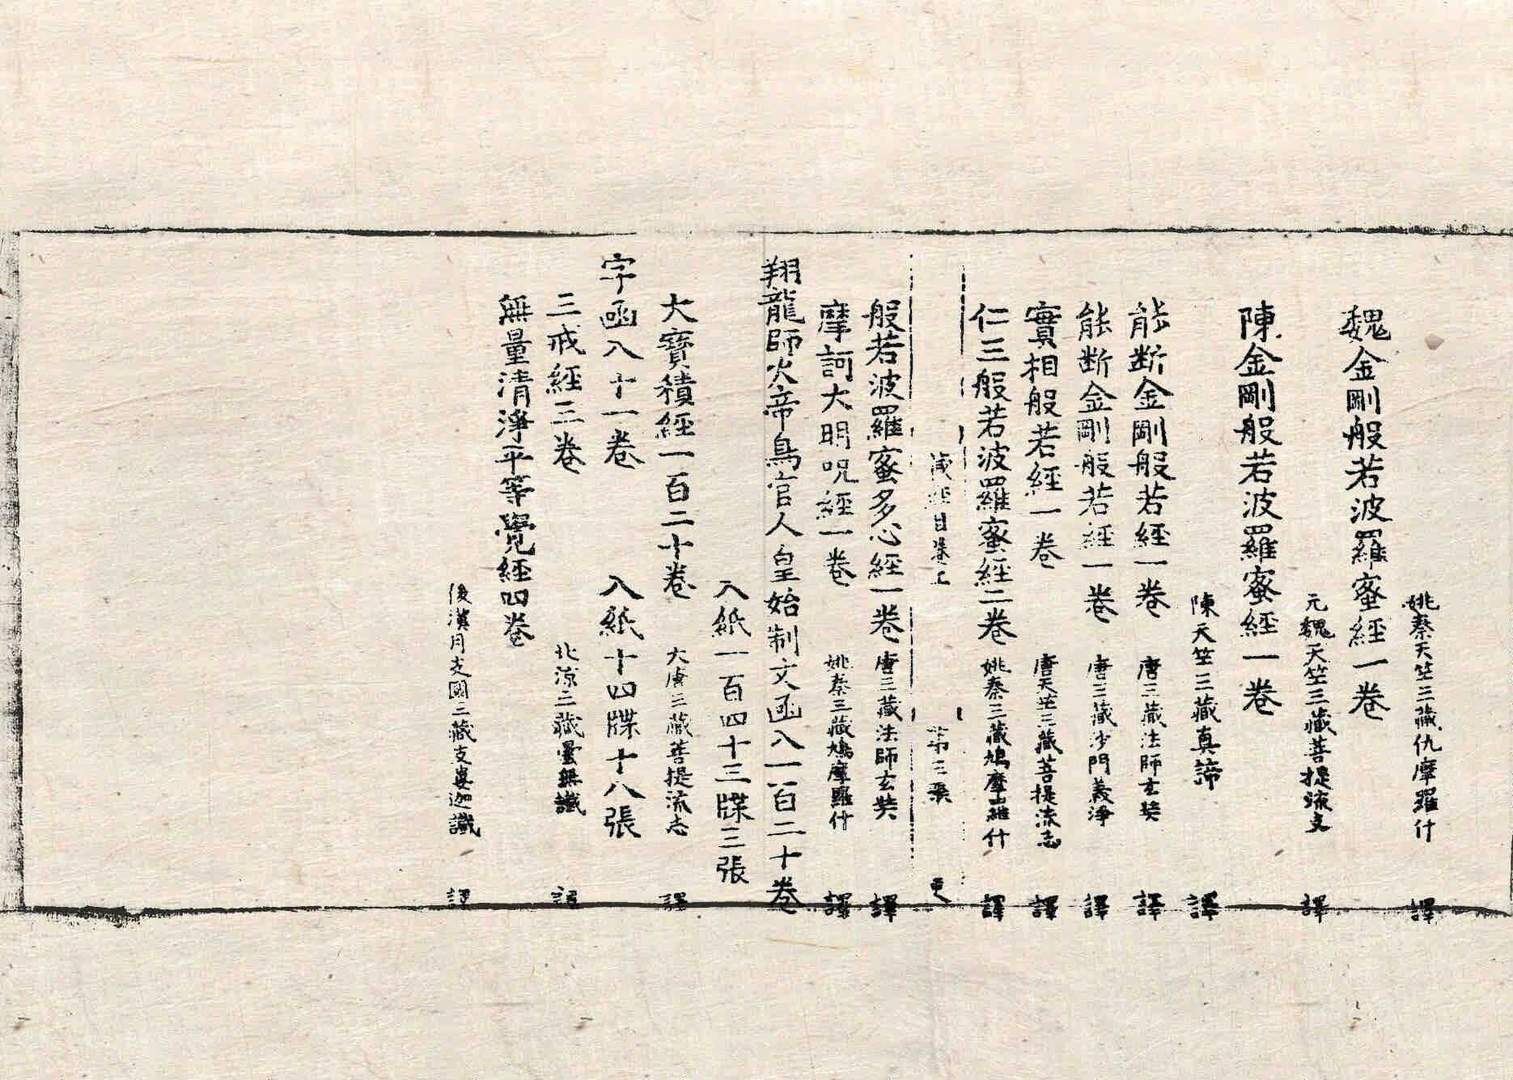 姚秦天竺三藏仇摩羅什 譯
魏金剛般若波羅蜜經一卷
元魏天竺三藏菩提流支 譯
陳金剛般若波羅蜜經一卷
陳天竺三藏真諦 譯
能断金剛般若經一卷 唐三藏法師玄奘 譯
能断金剛般若經一卷 唐三藏沙門義淨 譯
實相般若經一卷 唐天竺三藏菩提流志 譯
仁王般若波羅蜜經二卷 姚秦三藏鳩摩羅什 譯
藏經目卷上 第三
般若波羅蜜多心經一卷 唐三藏法師玄奘 譯
摩訶大明呪經一卷 姚秦三藏鳩摩羅什 譯
翔龍師火帝鳥官人皇始制文函八一百二十卷
入紙一百四十三牒三張
大寶積經一百二十卷 大唐三藏菩提流志 譯
字函八十一卷 入紙十四牒十八張
三戒經三卷 北凉三藏曇無讖 譯
無量清淨平等覺經四卷
後漢月支國三藏支婁迦讖 譯